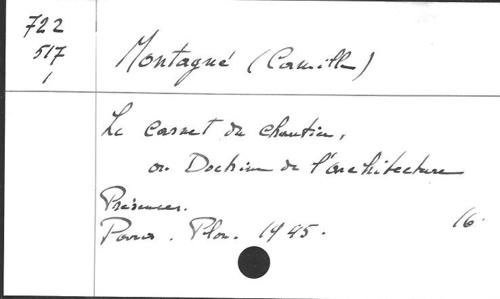 722
517
1
Montagné (Camille)
Le carnet du chantier,
ou Doctrine de l'architecture
Présences.
Paris. Plon. 1945. 16